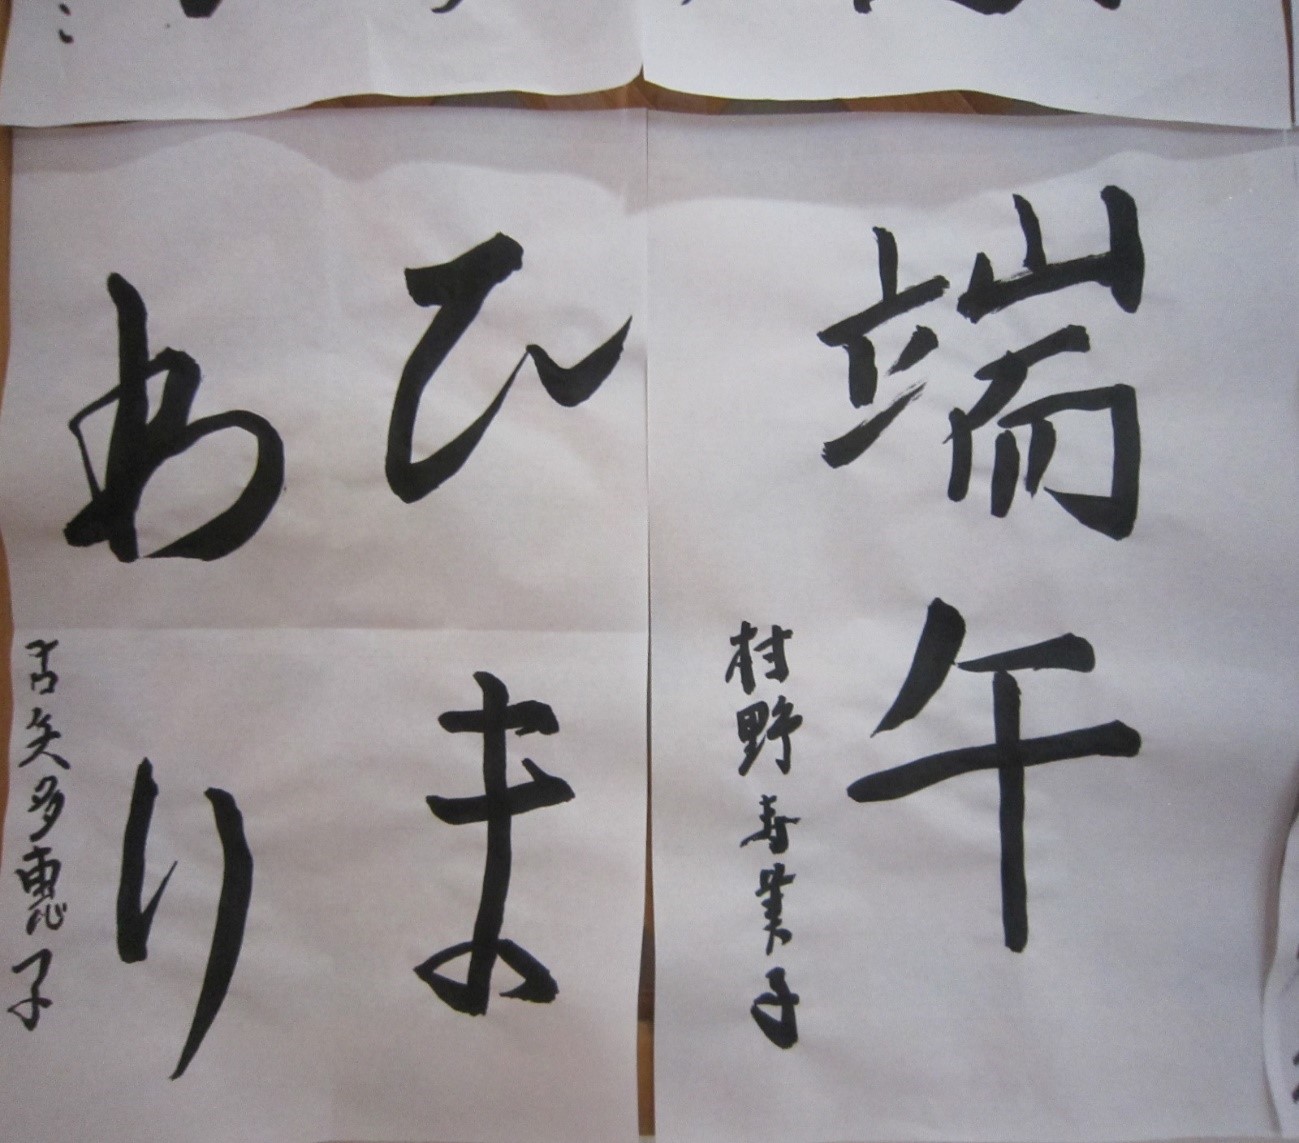 端午
村野寿美子
ひま
わり
古矢多恵子